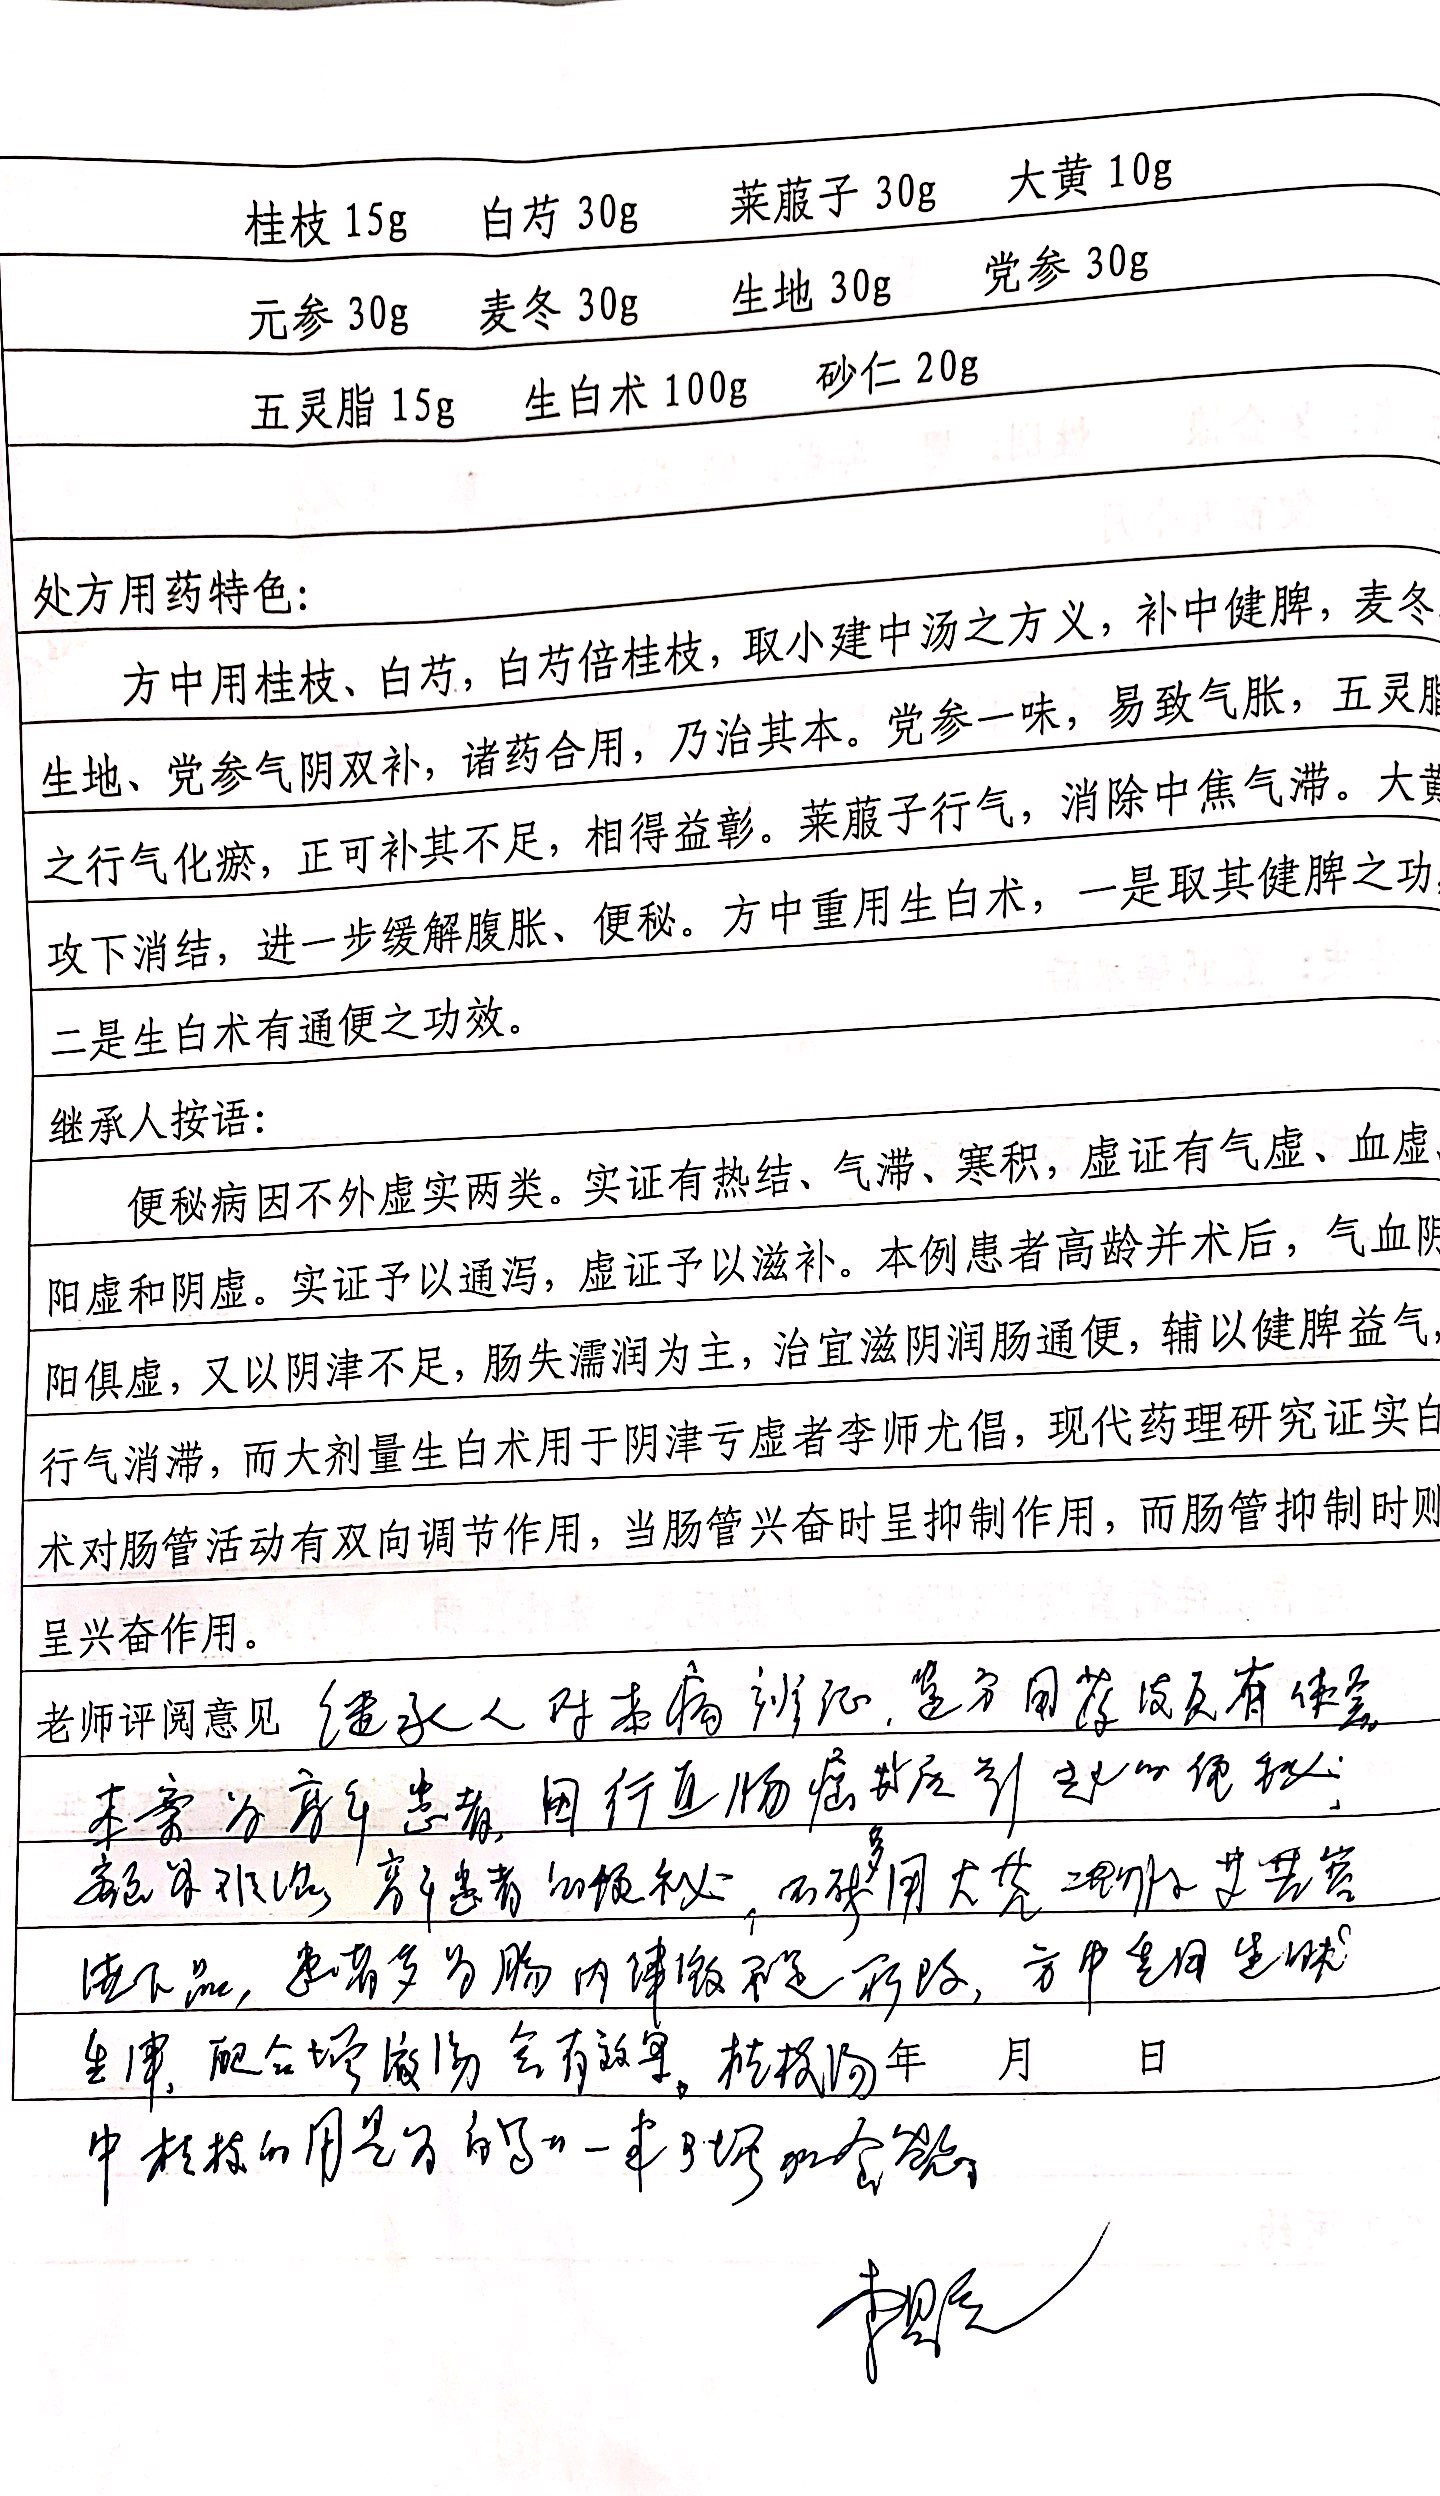 桂枝 15g 白芍 30g 莱菔子 30g 大黄 10g
元参 30g 麦冬 30g 生地 30g 党参 30g
五灵脂 15g 生白术 100g 砂仁 20g
处方用药特色：
方中用桂枝、白芍，白芍倍桂枝，取小建中汤之方义，补中健脾，麦冬
生地、党参气阴双补，诸药合用，乃治其本。党参一味，易致气胀，五灵脂
之行气化瘀，正可补其不足，相得益彰。莱菔子行气，消除中焦气滞。大黄
攻下消结，进一步缓解腹胀、便秘。方中重用生白术，一是取其健脾之功，
二是生白术有通便之功效。
继承人按语：
便秘病因不外虚实两类。实证有热结、气滞、寒积，虚证有气虚、血虚、
阳虚和阴虚。实证予以通泻，虚证予以滋补。本例患者高龄并术后，气血阴
阳俱虚，又以阴津不足，肠失濡润为主，治宜滋阴润肠通便，辅以健脾益气，
行气消滞，而大剂量生白术用于阴津亏虚者李师尤倡，现代药理研究证实白
术对肠管活动有双向调节作用，当肠管兴奋时呈抑制作用，而肠管抑制时则
呈兴奋作用。
老师评阅意见 继承人对本病诊证，遣方用药波有体会。
本案为高年患者，因行直肠癌术后引起的便秘，
高年患者的便秘，不能多用大黄
品，患者多为肠内津液不足所致，方中重用生白术
生津，配合增液汤会有效果。桂枝汤 年 月 日
中桂枝的用量为白芍的一半